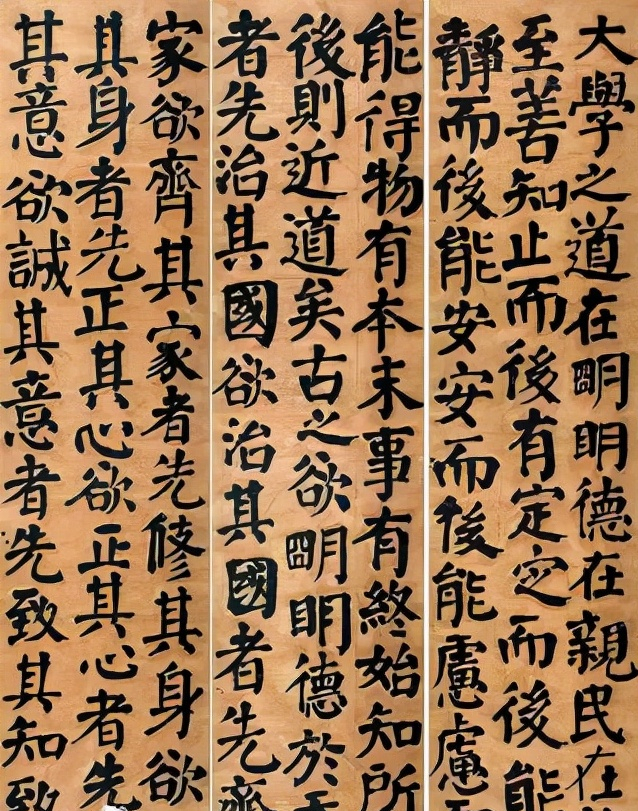 大學之道在明明德在親民在
至善知止而後有定定而後能
靜而後能安安而後能慮慮
能得物有本末事有終始知所
後則近道矣古之欲明明德於
者先治其國欲治其國者先齊
家欲齊其家者先修其身欲
其身者先正其心欲正其心者先
其意欲誠其意者先致其知致